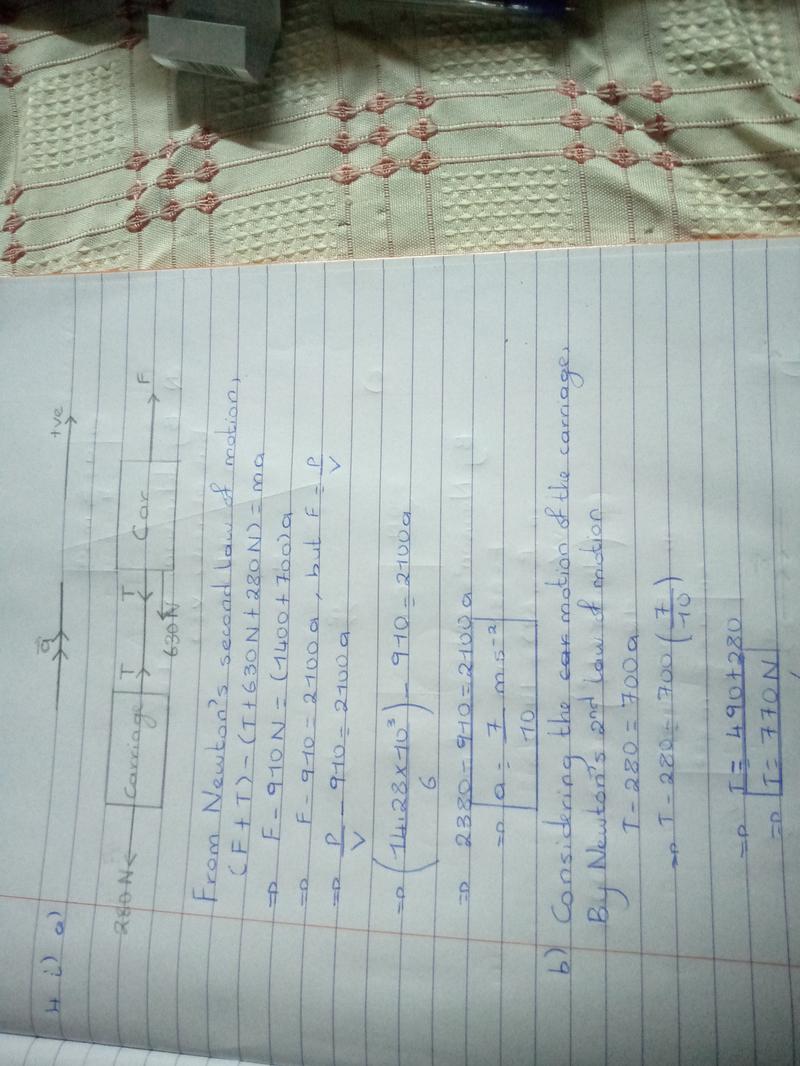 4 i) a)
a
+ve
280N
Carriage
T
T
Car
F
630N
From Newton's second law of motion,
(F+T) - (T+630N+280N) = ma
⇒ F - 910N = (1400+700)a
⇒ F - 910 = 2100a, but F = P/V
⇒ P/V - 910 = 2100a
⇒ (14.28×10³/6) - 910 = 2100a
⇒ 2380 - 910 = 2100a
⇒ a = 7/10 ms⁻²
b) Considering the car motion of the carriage,
By Newton's 2nd law of motion
T - 280 = 700a
⇒ T - 280 = 700(7/10)
⇒ T = 490+280
⇒ T = 770N